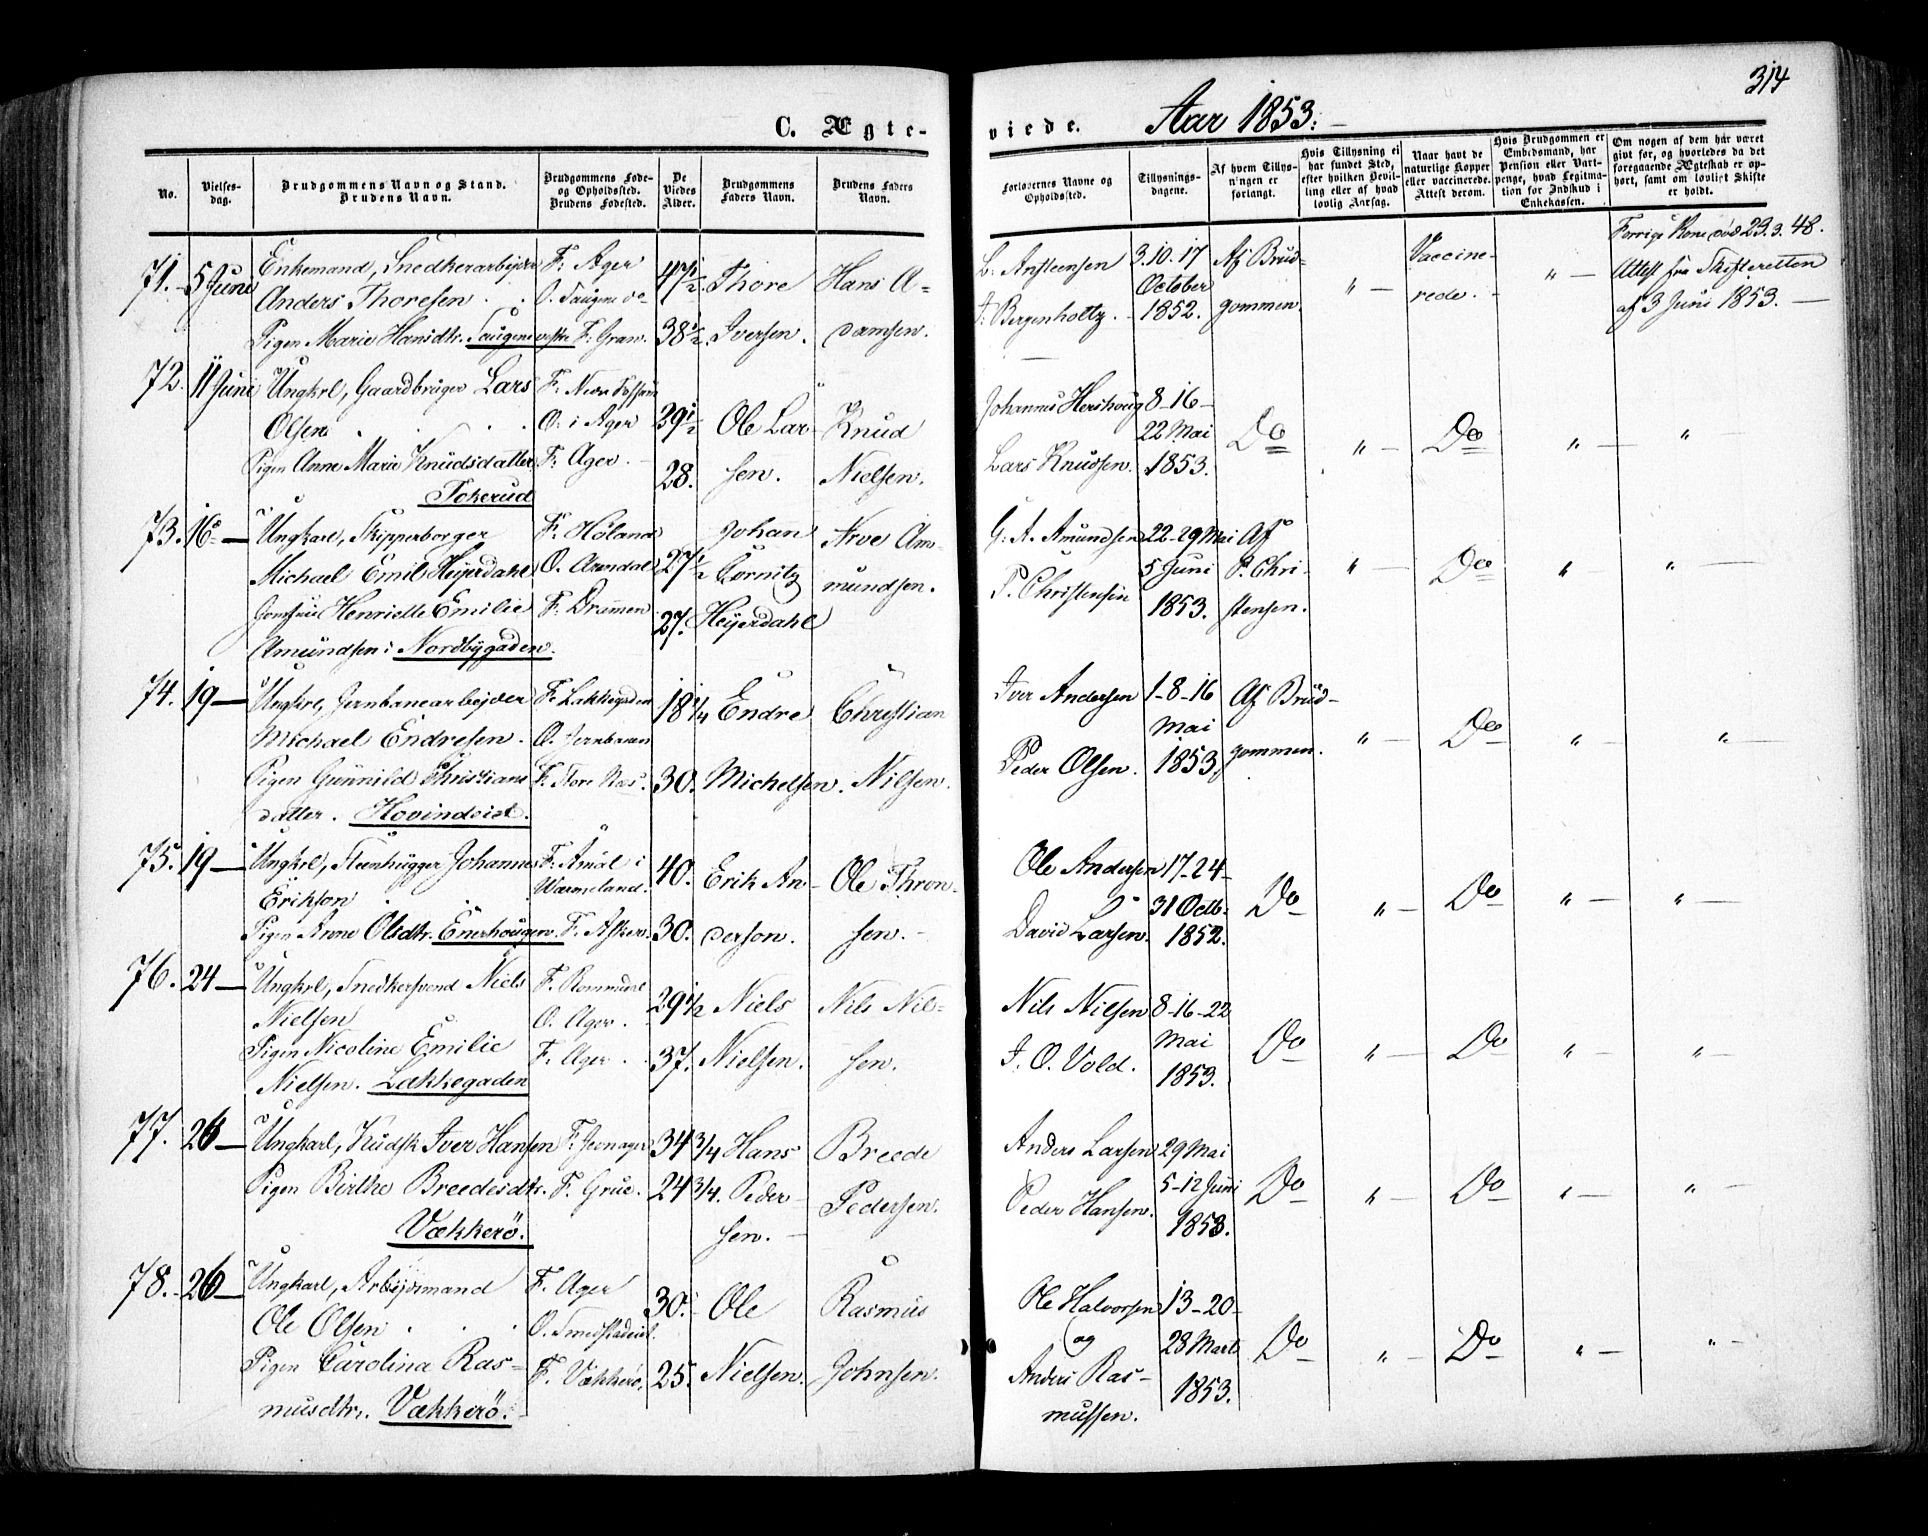 314
C. Ægte-
viede. Aar 1853.
No.
Vielses-
dag.
Brudgommens Navn og Stand.
Brudens Navn.
Brudgommens Føde-
og Opholdssted.
Brudens Fødested.
De
Viedes
Alder.
Brudgommens
Faders Navn.
Brudens Faders
Navn.
Forlovernes Navne og
Opholdssted.
Tillysnings-
dagene.
Af hvem Tillys-
ningen er
forlangt.
Hvis Tillysning ei
har fundet Sted,
efter hvilken Bevil-
ling eller af hvad
lovlig Aarsag.
Naar havt de
naturlige Kopper
eller vaccinerede.
Attest derom.
Hvis Brudgommen er
Embedsmand, har
Pension eller Vart-
penge, hvad Legitima-
tion for Indskud i
Enkekassen.
Om nogen af dem har været
gift før, og hvorledes da det
foregaaende Ægteskab er op-
hørt, samt om lovligt Skifte
er holdt.
71. 5 Juni Enkemand, Snedkerarbejder F: Ager 47½ Thore Hans A-
Anders Thoresen O.
Pigen Marie Hansdtr. F: Gran. 38½ Iversen. damsen.
L. Ansteensen 3. 10. 17 Af Brud- " Vaccine- " Forrige Kone død 23.3.48.
October rede. Attest fra Skifteretten
J. Bergenholtz. 1852. gommen. af 3 Juni 1853.
72. 11 Juni Ungkrl, Gaardbruger Lars F:
Olsen O: i Ager 39½ Ole Lar Knud
Pigen Anne Marie Knudsdatter F: Ager. 28. sen. Nielsen.
Tokerud
Johannes Hershoug 8-16-
22 Mai Do " Do " "
Lars Knudsen. 1853.
73. 16 Ungkarl, Skipperborger F: Høland Johan Arve Am-
Michael Emil Heyerdahl O. Arendal 27½ Cornitz mundsen.
Jomfrue Henriette Emilie F: Drammen 27. Heyerdahl
Amundsen: Nordbygaden.
G. A. Amundsen 22-29 Mai Af
5 Juni P. Chri- " Do " "
P. Christensen 1853. stensen.
74. 19 Ungkrl, Jernbanearbejder F: Lakkegaden 18¼ Endre Christian
Michael Endresen. O. Jernbanen
Pigen Gunnild Christians F: Store Næs. 30. Michelsen. Nilsen.
datter. Hovindeiet.
Iver Andersen 1-8-16 Af Brud-
Mai " Do " "
Peder Olsen. 1853. gommen.
75. 19 Ungkrl, Steenhugger Johannes F: Åmål i 40. Erik An- Ole Thron-
Erikson Wærmeland.
Pigen Anne Olsdtr. Enerhougen. F. Asker. 30. derson. sen.
Ole Andersen 17-24-
31 Octb. Do " Do " "
David Larsen. 1852.
76. 24 Ungkrl, Snedkersvend Niels F. Romsdal 29½ Niels Nils Nil-
Nielsen O. Ager.
Pigen Nicoline Emilie F. Ager. 37. Nielsen. sen.
Nielsen. Lakkegaden
Nils Nilsen 8-16-22
Mai Do " Do " "
J. O. Vold. 1853.
77. 26 Ungkarl, Kudsk Iver Hansen F: Jevnager 34¾ Hans Breede
Pigen Birthe Breedesdtr. F. Grue. 24¾. Peder- Pedersen.
Vækkerö. sen.
Anders Larsen 29 Mai
5-12 Juni Do " Do " "
Peder Hansen. 1853.
78. 26 Ungkarl, Arbejdsmand F. Ager 30. Ole Rasmus
Ole Olsen O. Smedstadeiet.
Pigen Carolina Ras- F. Vækkerö. 25. Nielsen. Johnsen.
musdtr. Vækkerö.
Ole Halvorsen 13-20-
og 28 Marts Do " Do " "
Anders Ras- 1853.
mussen.